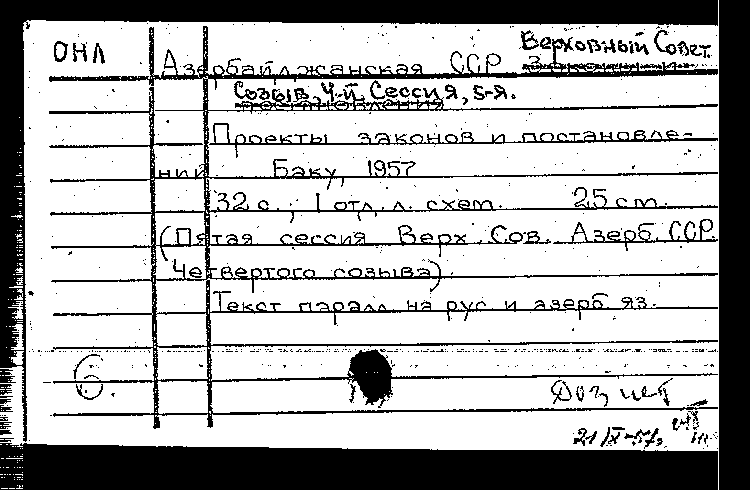 ОНЛ
Азербайджанская ССР Верховный Совет.
Созыв, 4-й, Сессия, 5-я.
Проекты законов и постановле-
ний Баку, 1957
32 с.; 1 отл. л. схем. 25 см.
(Пятая сессия Верх. Сов. Азерб. ССР.
Четвертого созыва).
Текст паралл. на рус и азерб яз.
6.
Доз нет
21/IX-57г.